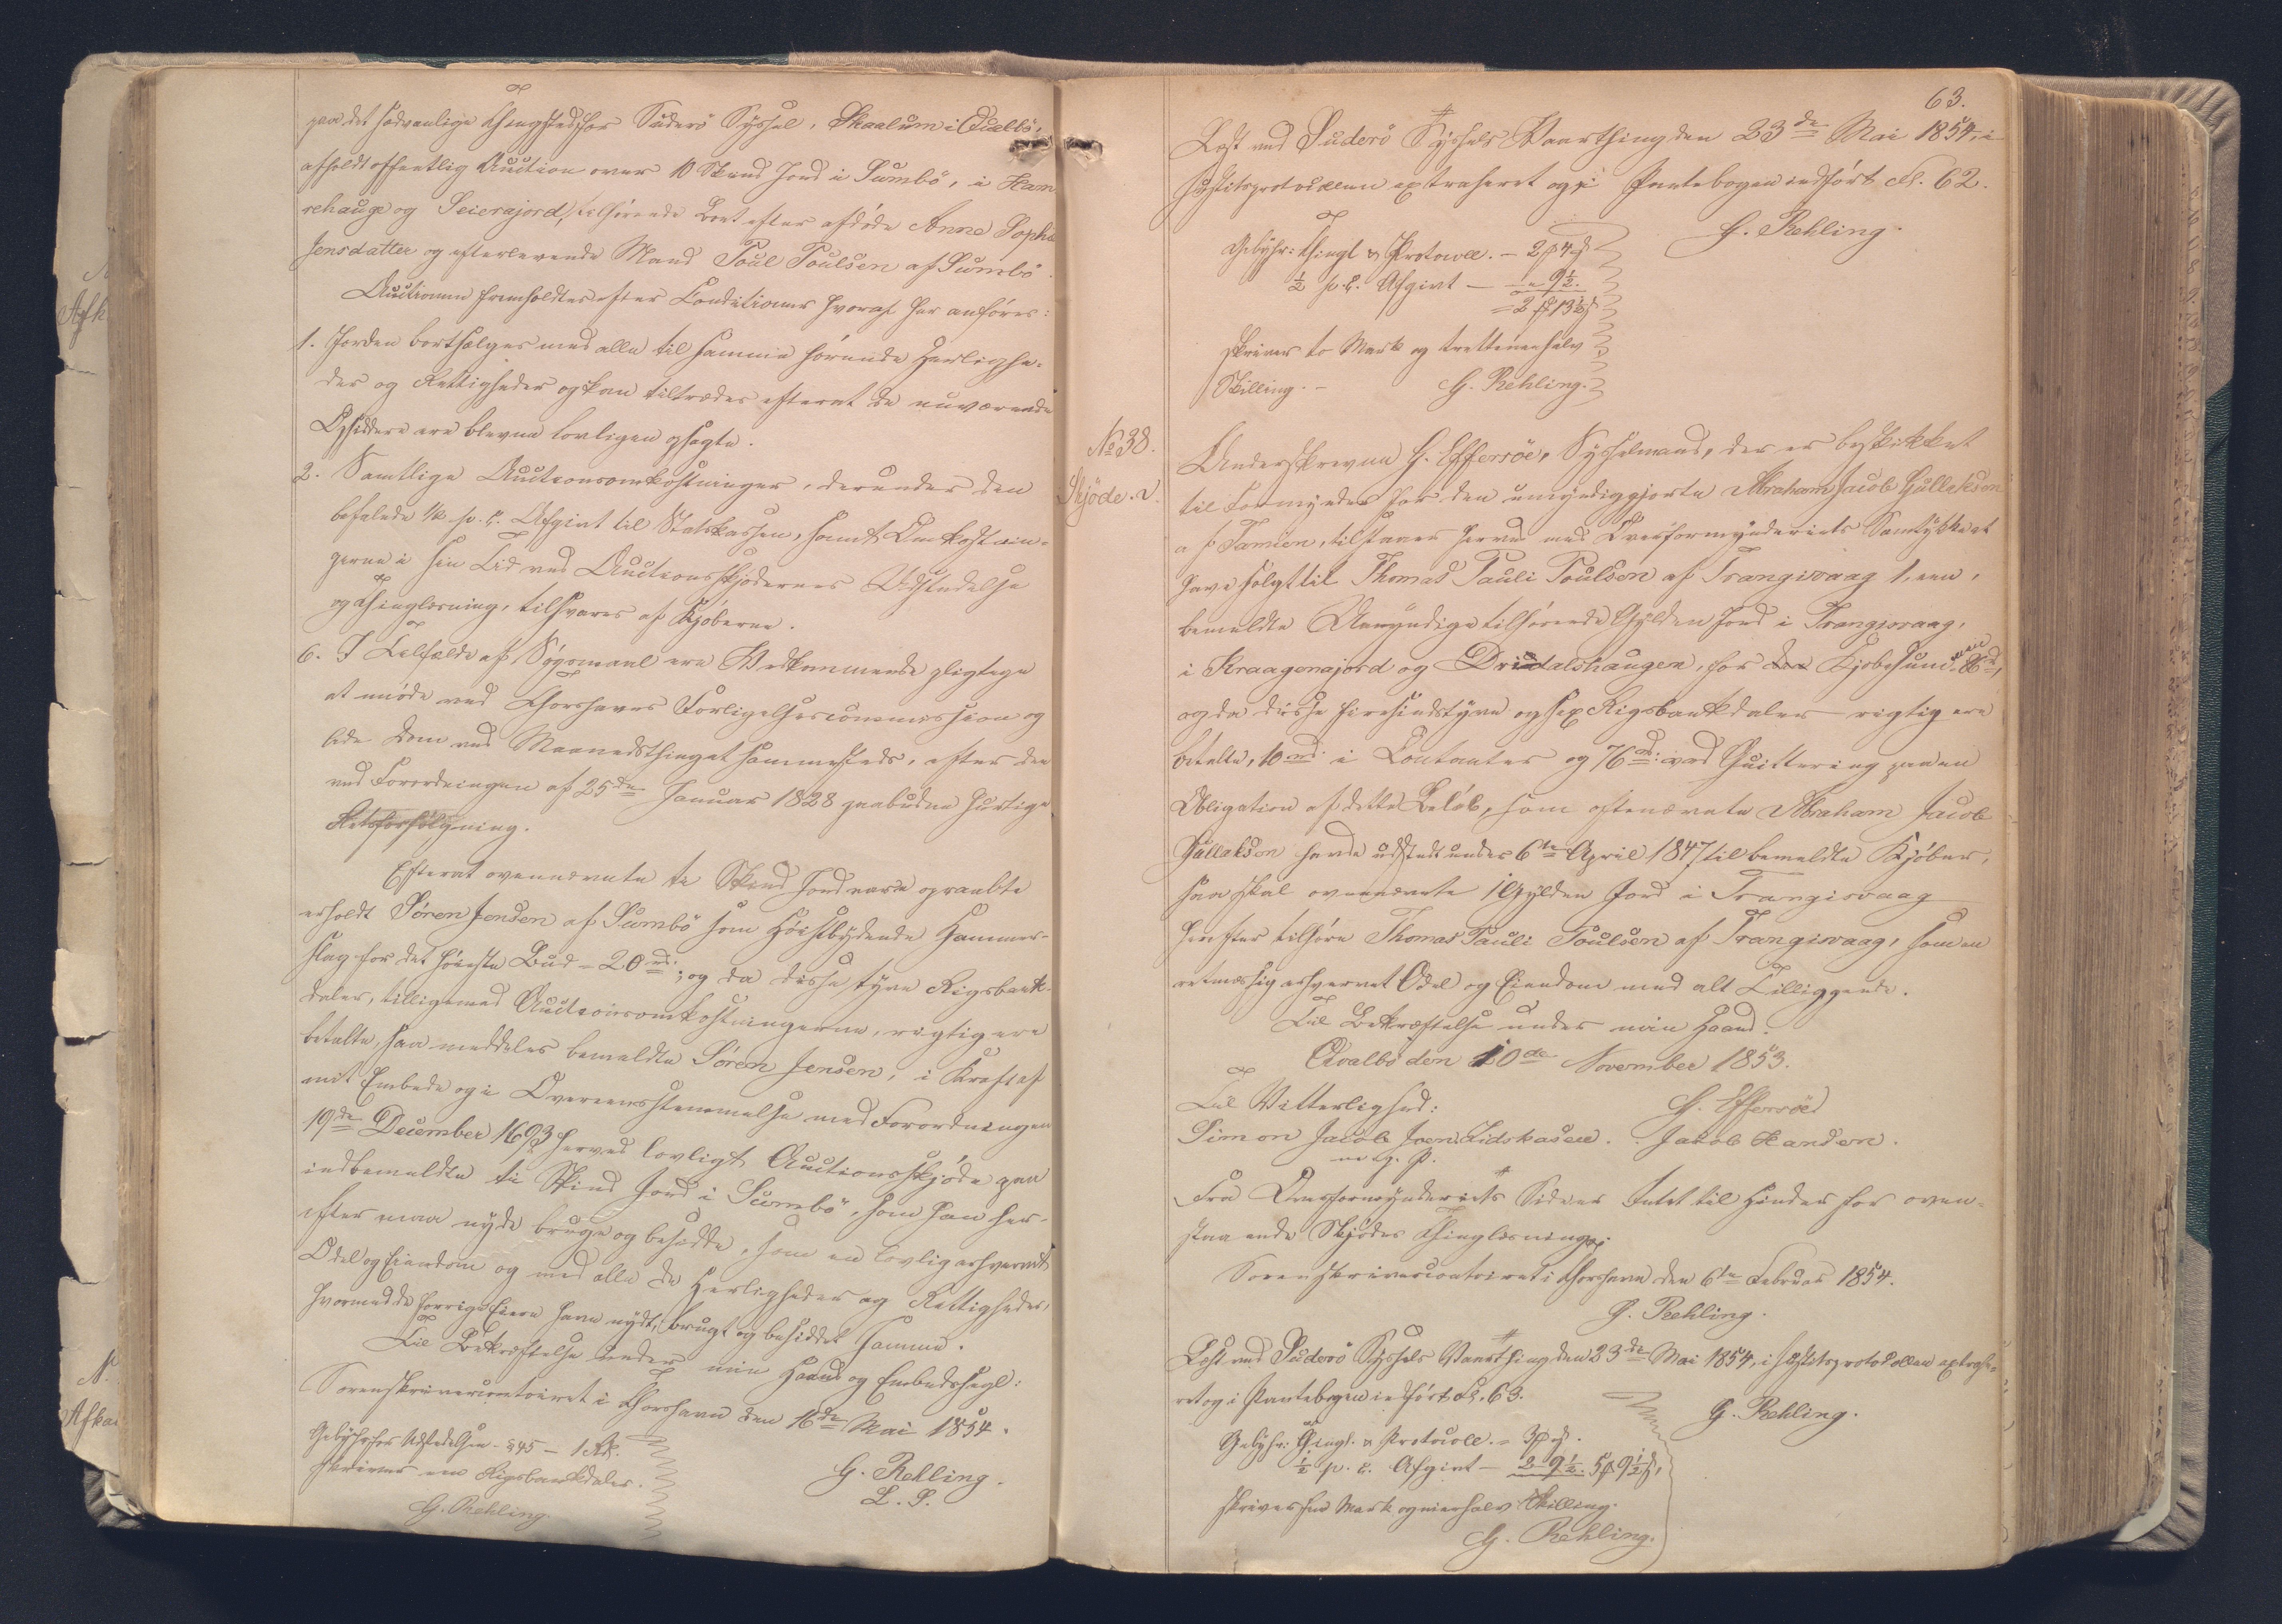 paa det sædvanlige Thingsted for Suderö Syssel, Skaalum i Qualbö,
afholdt offentlig Auction over 10 Skind Jord i Sumbö, i Ham
rehauge og Seierajord, tilhörende Boet efter afdöde Anne Sophie
Jensdatter og efterlevende Mand Poul Poulsen af Sumbö.
Auctionen fremholdtes efter Conditioner hvoraf her anföres:
1. Jorden bortsælges med alle til samme hörende Herlighe-
der og Rettigheder og kan tiltrædes efterat de nuværende
Opsiddere ere blevne lovligen opsagte.
2. Samtlige Auctionsomkostninger, derunder den
befalede ½ p. C. Afgivt til Statskassen, samt Omkostnin-
gerne i sin Tid ved Auctionsskjödernes Udstedelse
og Thinglæsning, tilsvares af Kjöberne.
6. I Tilfælde af Sögsmaal ere Vedkommende pligtige
at möde ved Thorshavns Forligelsescommission og
lide Dom ved Maanedsthinget sammesteds, efter den
ved Forordningen af 25de Januar 1828 paabudne hurtige
Retsforfölgning.
Efterat ovennævnte ti Skind Jord vare opraabte
erholdt Sören Jensen af Sumbö som Höistbydende Hammer-
slag for det höieste Bud - 20 rd:; og da disse tyve Rigsbank-
daler, tilligemed Auctionsomkostningerne, rigtig ere
betalte, saa meddeles bemeldte Sören Jensen, i Kraft af
mit Embede og i Overeensstemmelse med Forordningen
19de December 1693 herved lovligt Auctionsskjöde paa
indbemeldte ti Skind Jord i Sumbö, som han her-
efter maa nyde bruge og besidde, som en lovlig erhvervet
Odel og Eiendom og med alle de Herligheder og Rettigheder,
hvormed de forrige Eiere have nydt, brugt og besiddet samme.
Til Bekræftelse under min Haand og Embedssegl:
Sorenskrivercontoiret i Thorshavn den 16de Mai 1854.
Gebyhr for Udstedelsen. §45 - 1 Rd.
skriver een Rigsbankdaler.
G. Rehling.
L. S.
G. Rehling
63.
Læst ved Suderö Syssels Vaarthing den 23de Mai 1854, i
Justitsprotocollen extraheret og i Pantebogen indfört Fl. 62.
G. Rehling.
Gebyhr: Thingl. & Protocoll. - 2 4
½ p. C. Afgivt - 9½.
2 13½
skriver to Mark og trettenenhalv
Skilling. - G. Rehling.
No 38.
Skjöde.
Underskrevne G. Effersöe, Sysselmand, der er beskikket
til Formynder for den umyndiggjorte Abraham Jacob Gullaksen
af Famien, tilstaaer herved med Overformynderiets Samtykke at
have solgt til Thomas Pauli Poulsen af Trangisvaag 1, een,
bemeldte Umyndige tilhörende Gylden Jord i Trangisvaag,
i Kraagenajord og Dridalshaugen, for den Kjöbesum 86 rd,
og da disse firesindstyve og sex Rigsbankdaler rigtig ere
betalte, 10 rd: i Contanter og 76 rd: ved Quittering paa en
Obligation af dette Belöb, som oftenævnte Abraham Jacob
Gullaksen havde udstedt under 6te April 1847 til bemeldte Kjöber,
saa skal ovennævnte 1 Gylden Jord i Trangisvaag
herefter tilhöre Thomas Pauli Poulsen af Trangisvaag, som en
retmæssig erhvervet Odel og Eiendom med alt Tilliggende.
Til Bekræftelse under min Haand.
Qvalbö den 10de November 1853.
Til Vitterlighed: G. Effersöe
Simon Jacob Joen Lidskasen. Jacob Hansen.
m. f. P.
Fra Overformynderiets Side er Intet til Hinder for oven-
staaende Skjödes Thinglæsning.
Sorenskrivercontoiret i Thorshavn den 6te Februar 1854.
G. Rehling.
Læst ved Suderö Syssels Vaarthing den 23de Mai 1854, i Justitsprotocollen extrahe-
ret og i Pantebogen indfört Fl. 63.
G. Rehling.
Gebyhr: Thingl. & Protocoll. - 3
½ p. C. Afgivt - 2 9½ 5 9½,
skriver fem Mark og nienhalv Skilling.
G. Rehling.